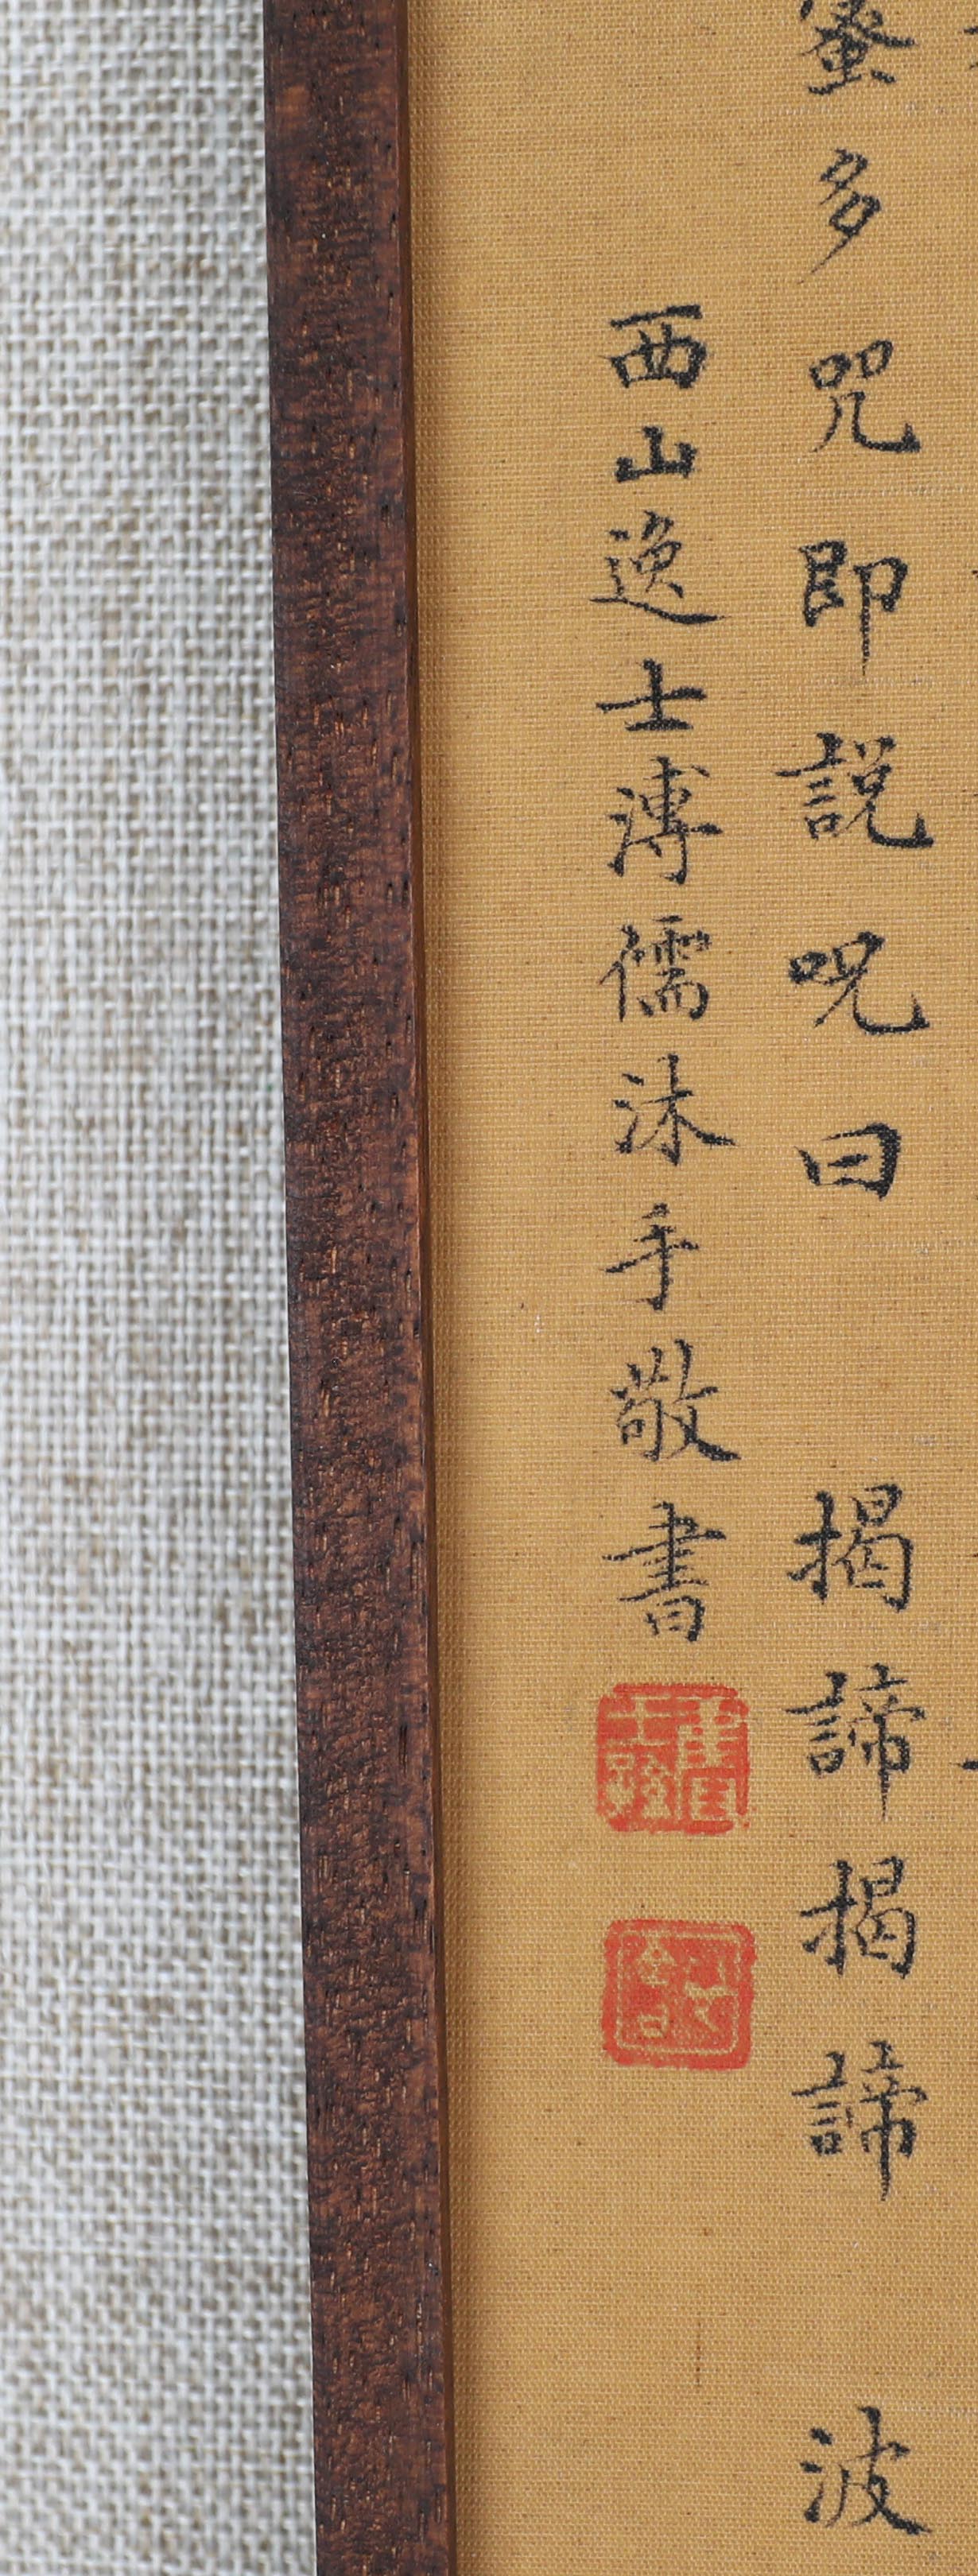 蜜多咒即說呪曰 揭諦揭諦 波
西山逸士溥儒沐手敬書